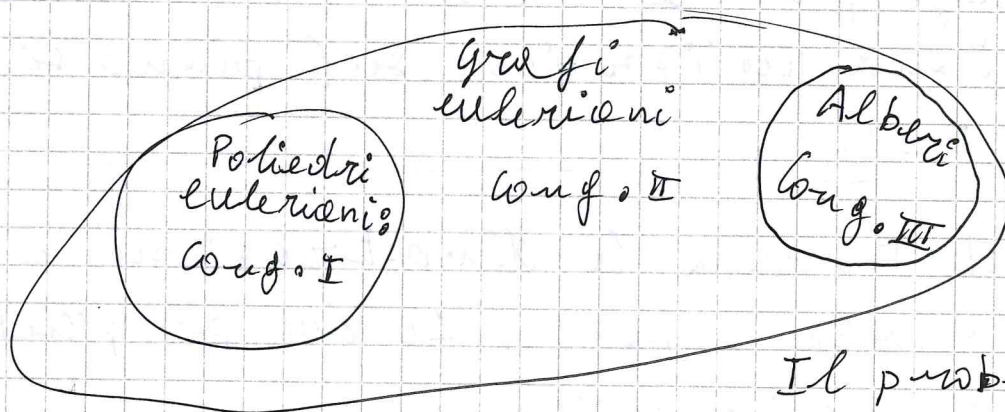 Grafi
euleriani
Cong. II
Poliedri
euleriani:
Cong. I
Alberi
Cong. III
Il prob